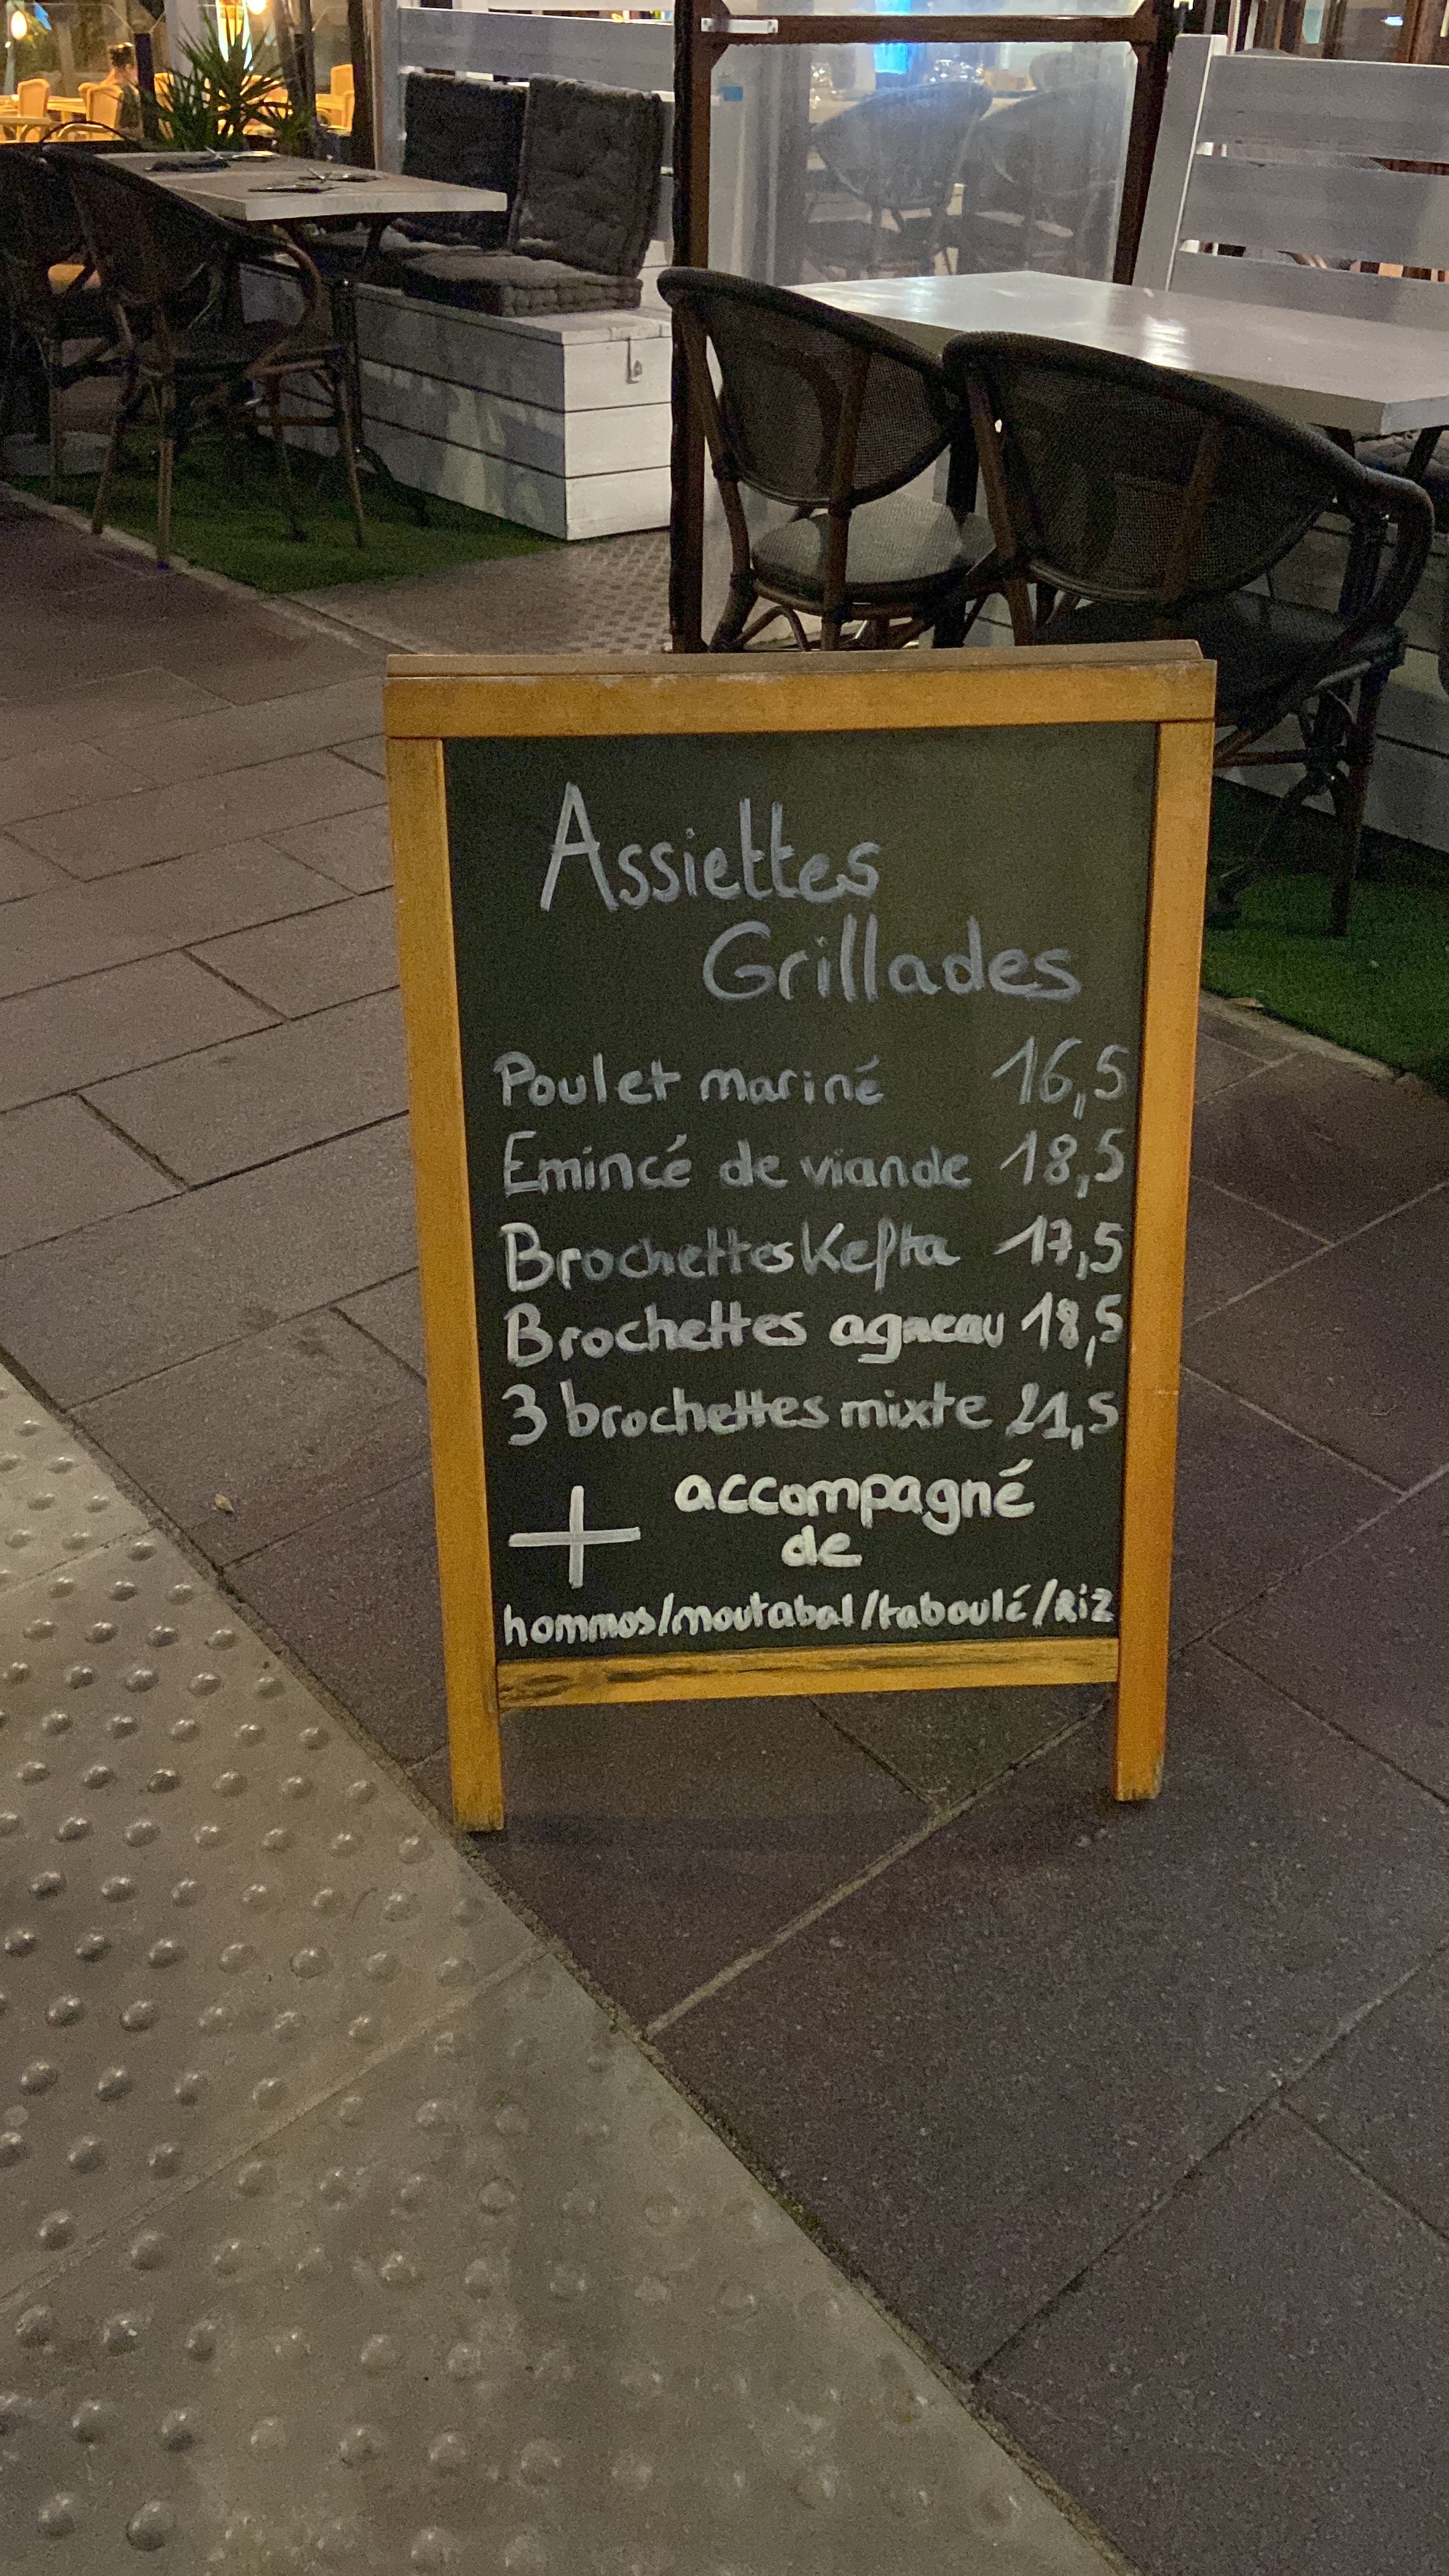 Assiettes
Grillades
Poulet mariné 16,5
Emincé de viande 18,5
Brochettes Kefta 17,5
Brochettes agneau 18,5
3 brochettes mixte 21,5
+ accompagné
de
hommos/moutabal/taboulé/Riz